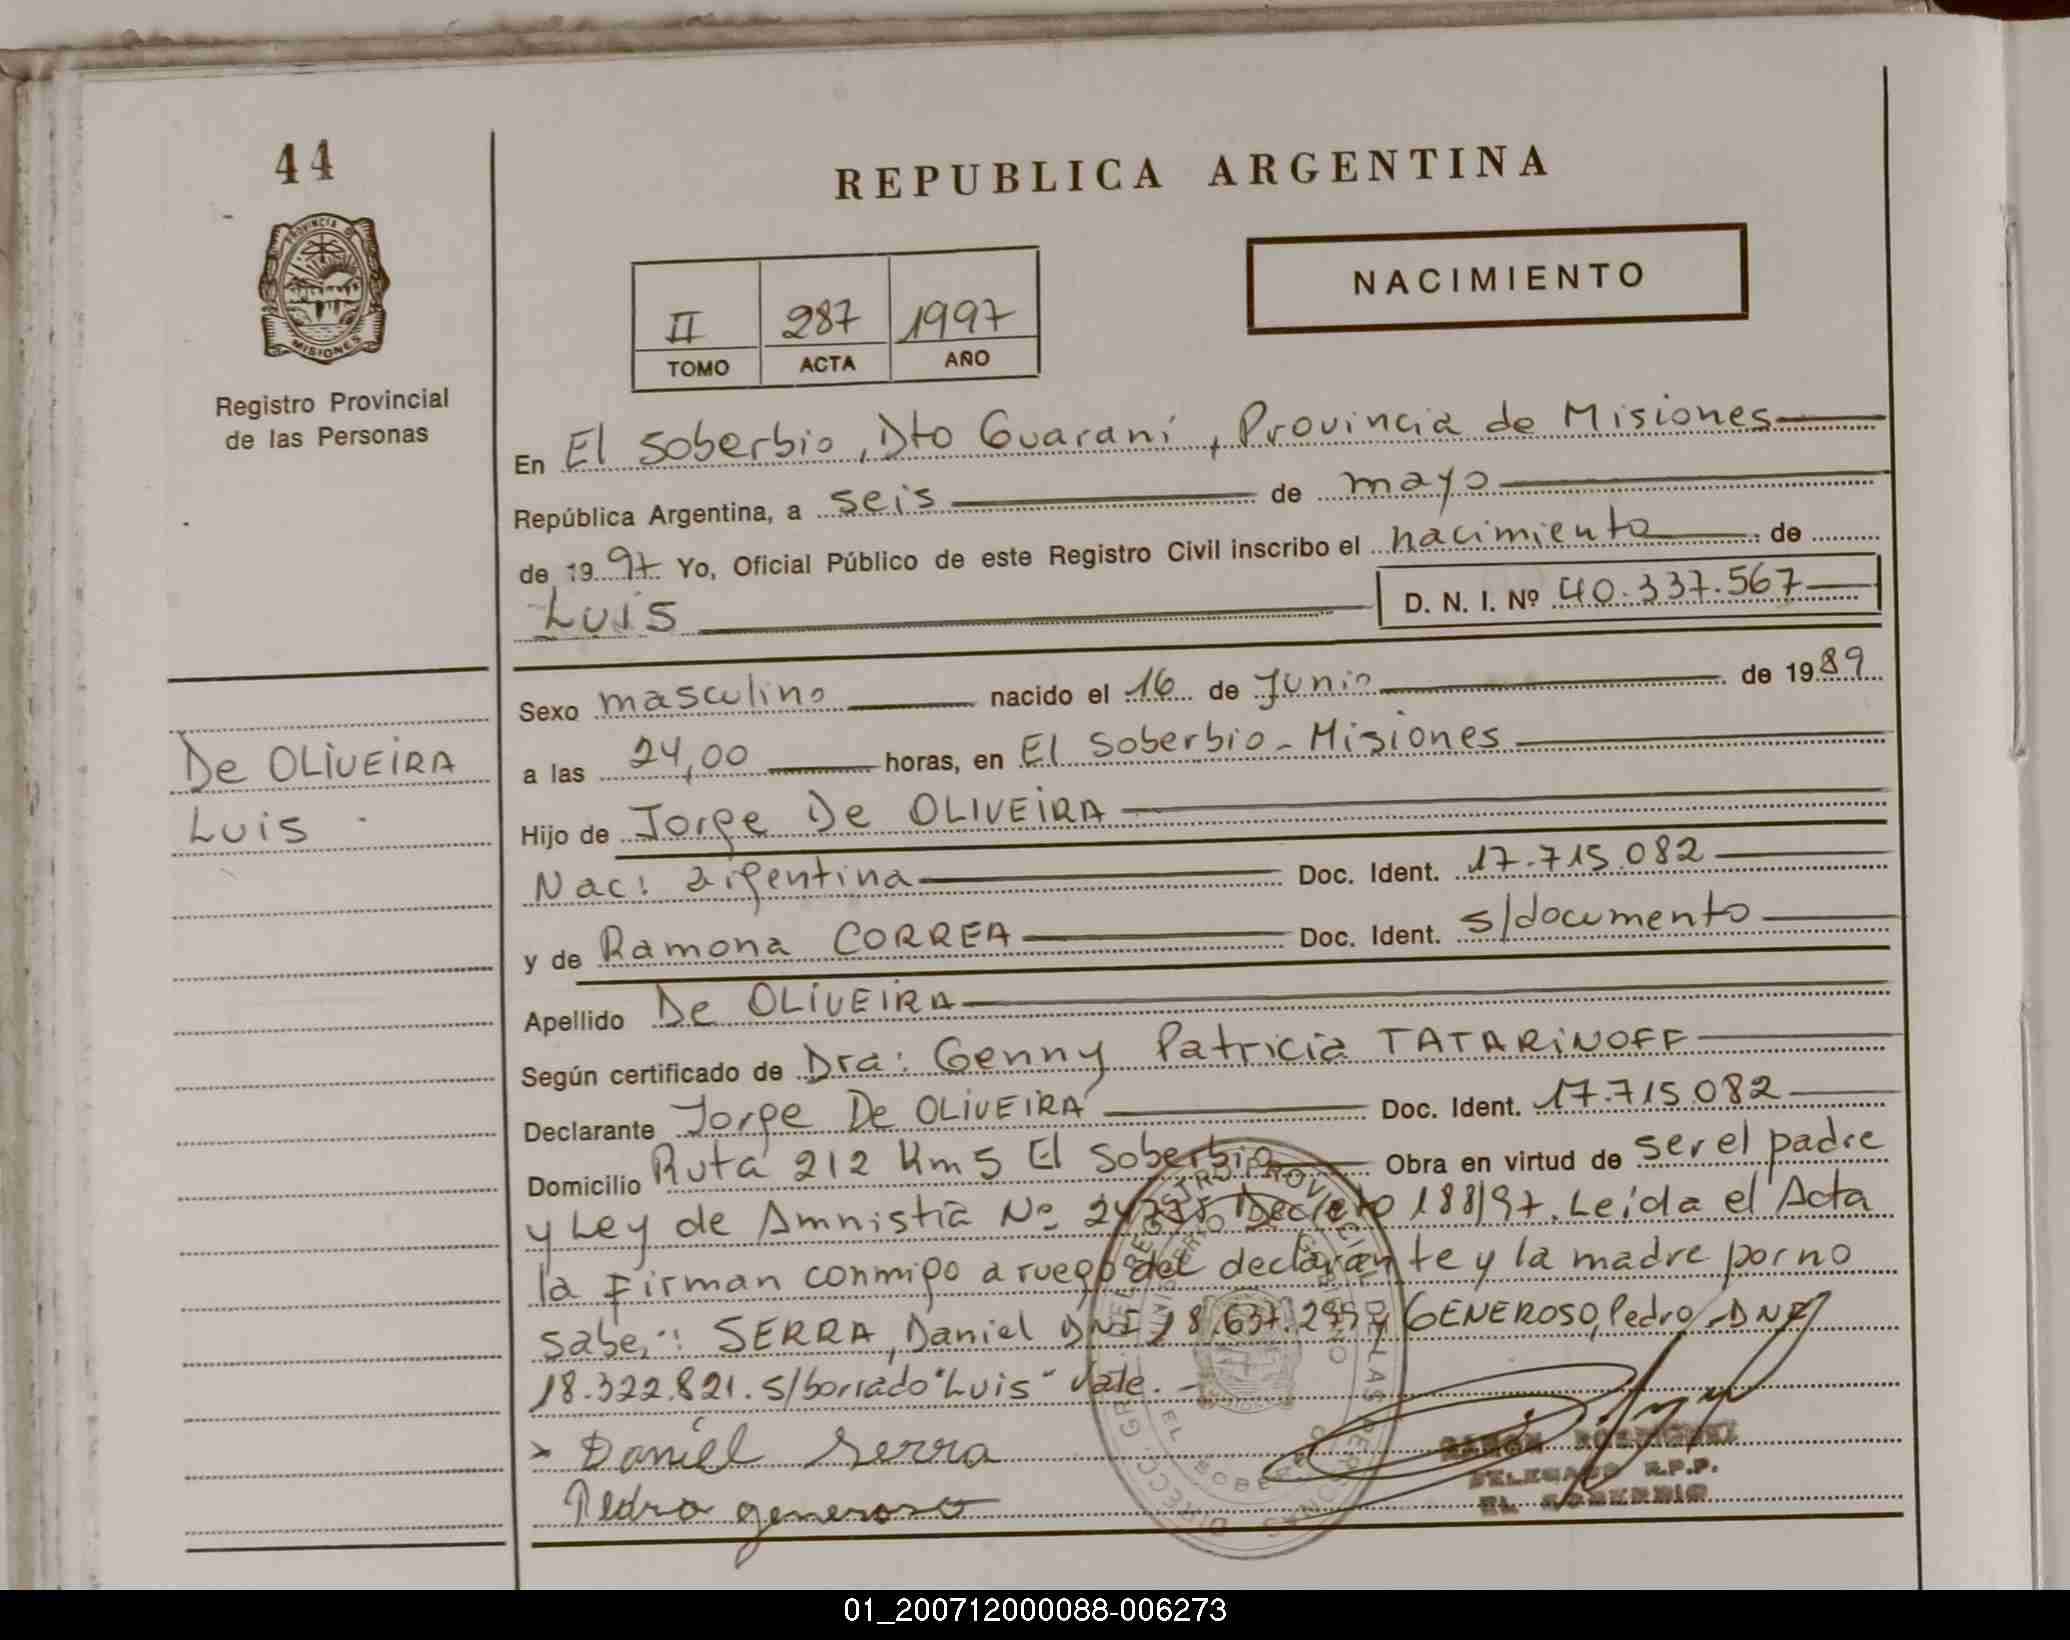 44
PROVINCIA DE
MISIONES
Registro Provincial
de las Personas
REPUBLICA ARGENTINA
NACIMIENTO
II 287 1997
TOMO ACTA AÑO
En El Soberbio, Dto Guaraní, Provincia de Misiones
República Argentina, a seis de mayo
de 1997 Yo, Oficial Público de este Registro Civil inscribo el nacimiento de
Luis D. N. I. Nº 40.337.567
Sexo masculino nacido el 16 de Junio de 1989
De OLIVEIRA
Luis
a las 24,00 horas, en El Soberbio - Misiones
Hijo de Jorge De OLIVEIRA
Nac: argentina Doc. Ident. 17.715.082
y de Ramona CORREA Doc. Ident. s/documento
Apellido De OLIVEIRA
Según certificado de Dra: Genny Patricia TATARINOFF
Declarante Jorge De OLIVEIRA Doc. Ident. 17.715.082
Domicilio Ruta 212 Km 5 El Soberbio Obra en virtud de ser el padre
y Ley de Amnistia Nº Decreto 188/97. Leída el Acta
la Firman conmigo a ruego del declarante y la madre por no
sabe,: SERRA, Daniel DNI 18.637. y GENEROSO, Pedro - DNI
18.322.821. s/borrado "Luis" Vale. -
Daniel Serra
Pedro generoso
DELEGADO R.P.P.
EL SOBERBIO
01_200712000088-006273